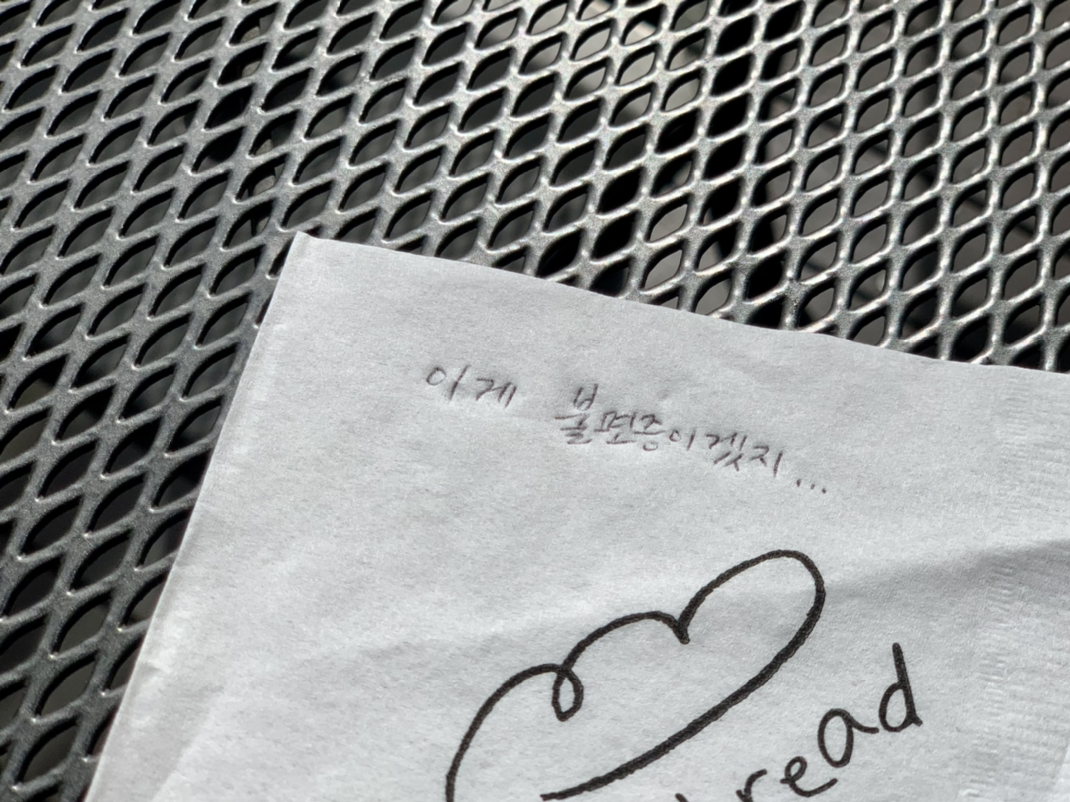 이게 불면증이겠지...
read